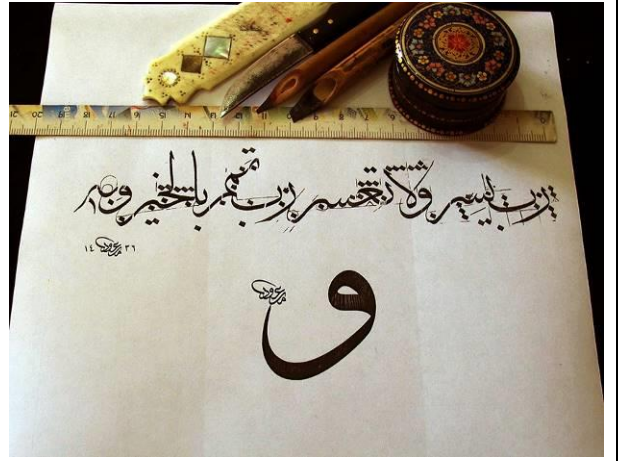 رب يسر ولا تعسر رب تمم بالخير
١٤ ٣٦
و